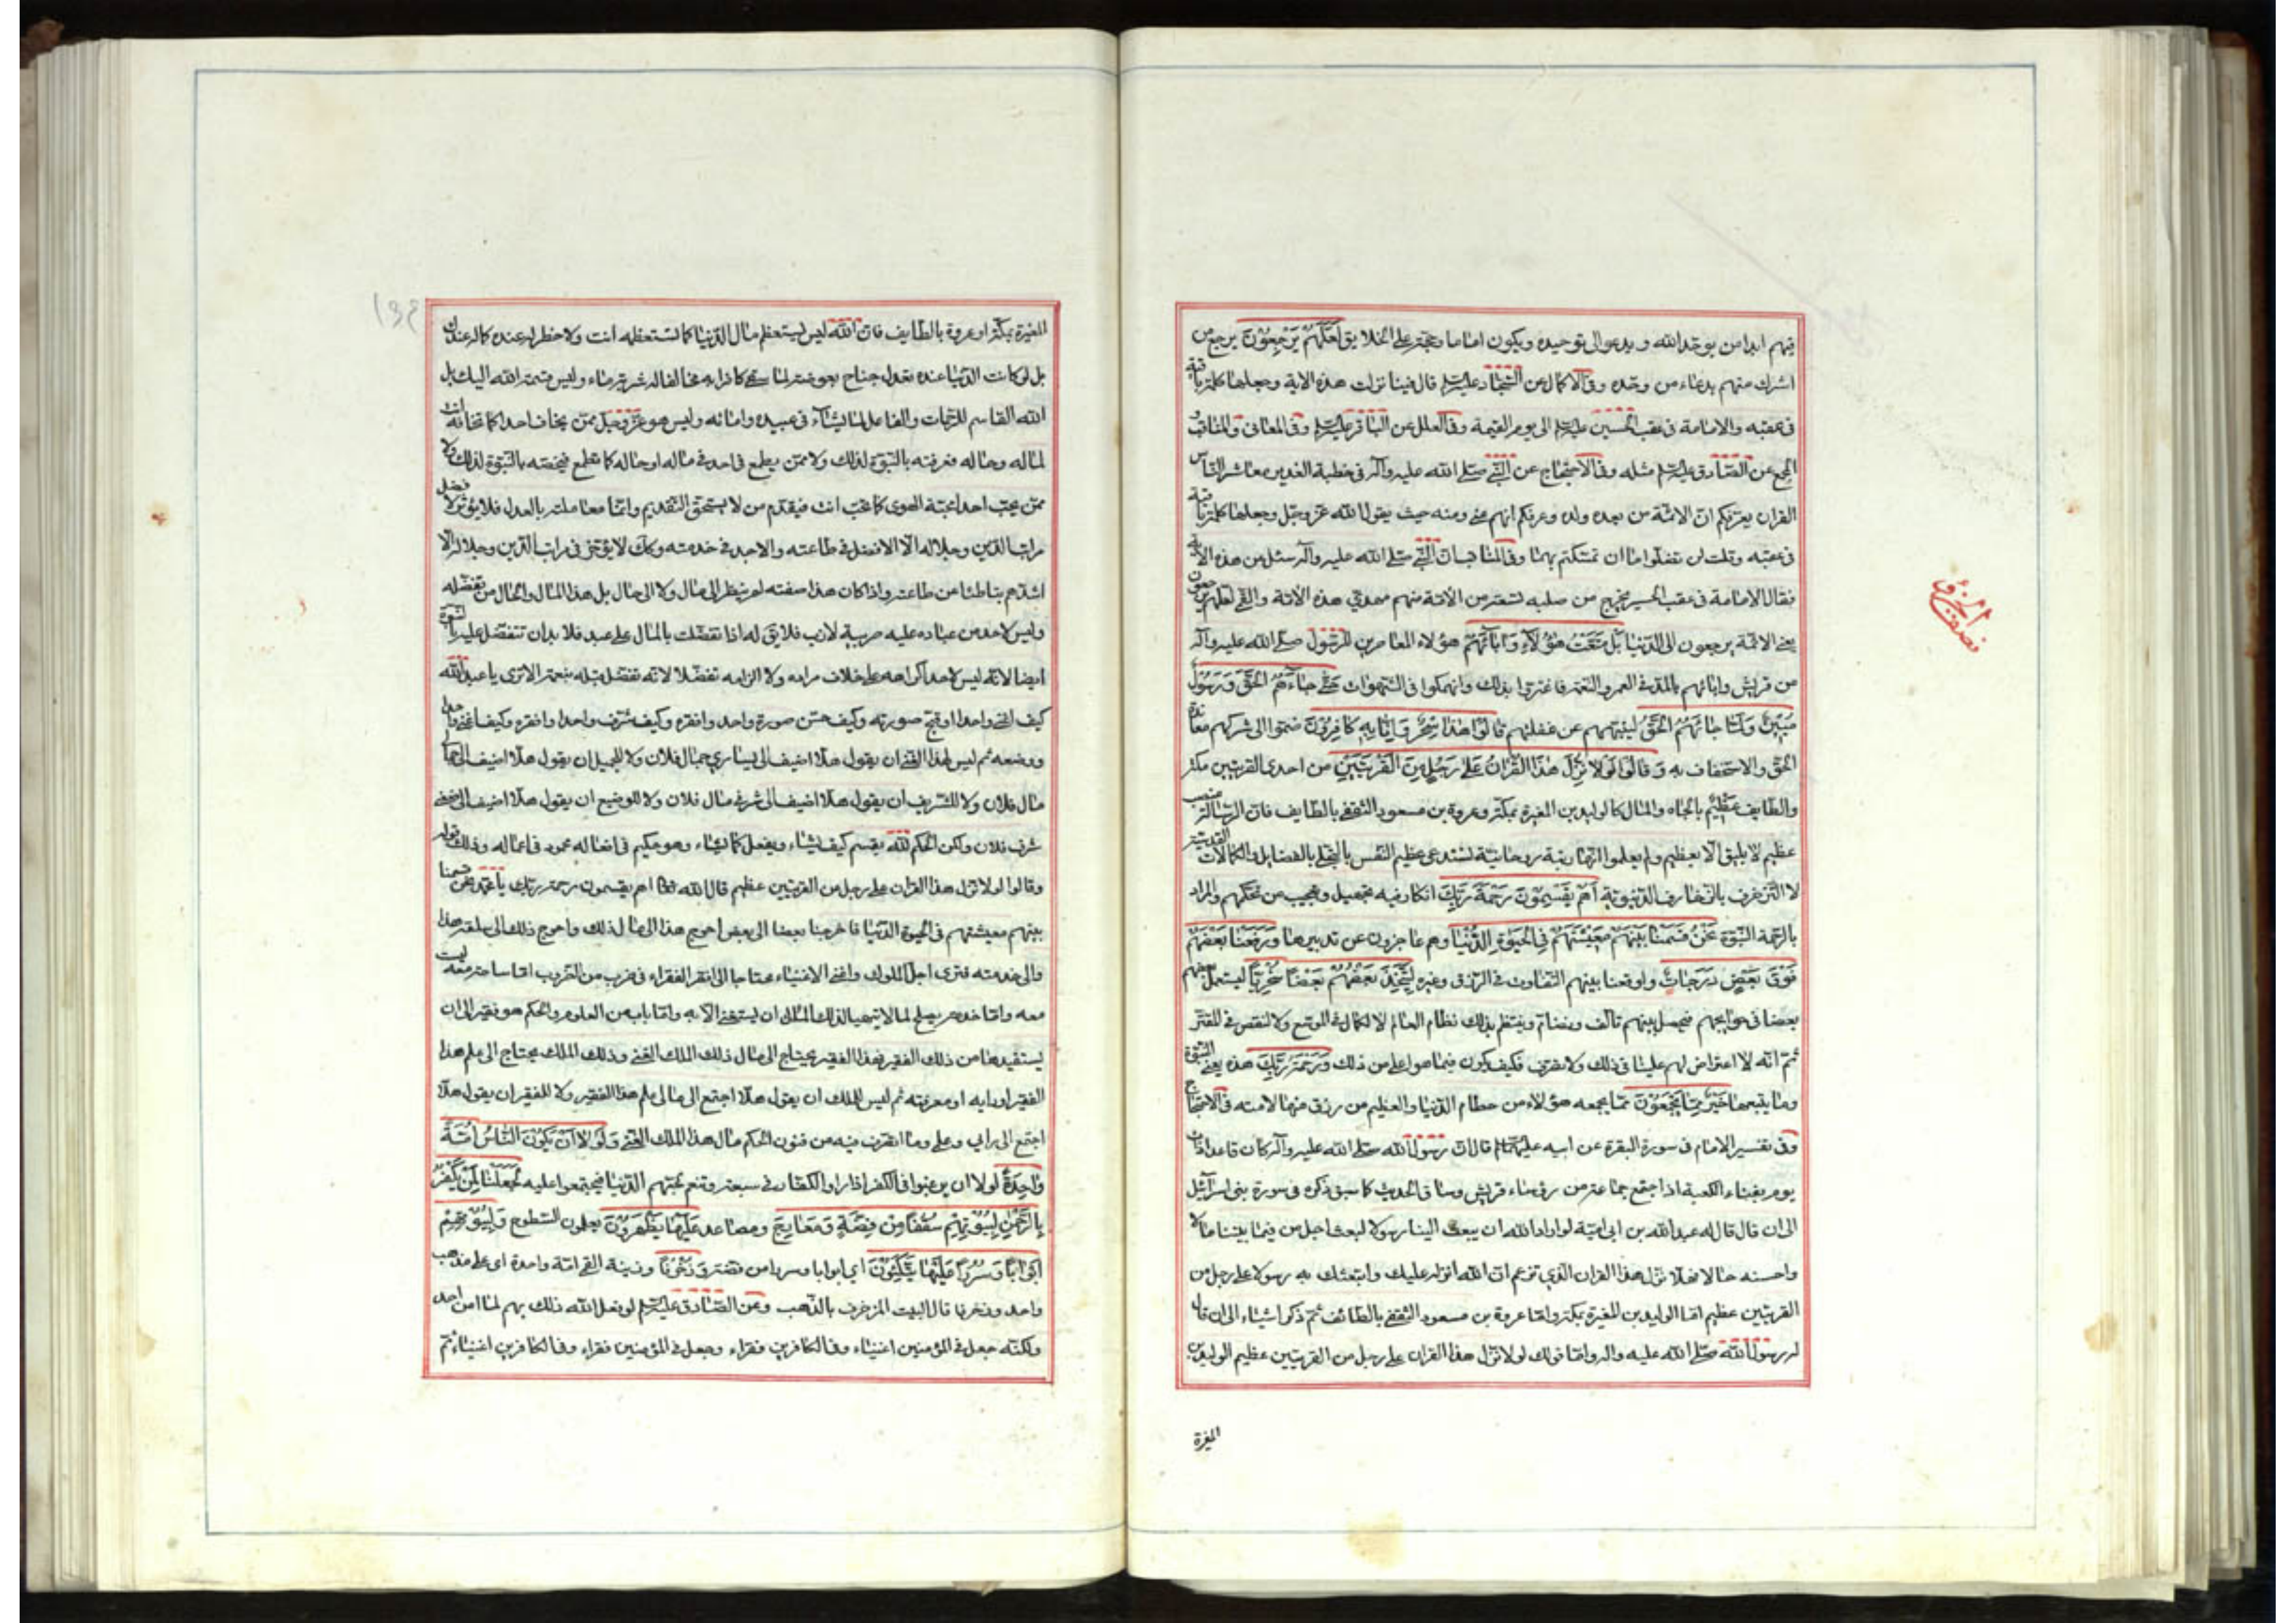 فيهم ابدا من يوحد الله و يدعو الى توحيده ويكون اماما وحجة على الخلايق لَعَلَّهُمْ يَرْجِعُونَ يرجع من
اشرك منهم بدعاء من وحّده وفى الاكمال عن السّجّاد عليه السلم قال فينا نزلت هذه الاية وجعلها كلمة باقية
فى عقبه والامامة فى عقب الحسين عليه السلم الى يوم القيمة وفى العلل عن الباقر عليه السلم وفى المعانى والمناقب
المجمع عن الصّادق عليه السلم مثله وفى الاحتجاج عن النّبى صلى الله عليه وآله فى خطبة الغدير معاشر الناس
القران يعرّفكم انّ الائمّة من بعده ولده وعرفتكم انهم منى ومنه حيث يقول الله عزّ وجلّ وجعلها كلمة باقية
فى عقبه وقلت لن تضلوا ما ان تمسّكتم بهما وفى المناقب انّ النّبى صلى الله عليه وآله سئل عن هذه الاية
فقال الامامة فى عقب الحسين يخرج من صلبه تسعة من الائمة منهم مهدى هذه الامّة والقمى لعلهم يرجعون
يعنى الائمة يرجعون الى الدّنيا بَلْ مَتَّعْتُ هَؤُلاءِ وَآبَائَهُمْ هؤلاء المعاصرين للرّسول صلى الله عليه وآله
من قريش وابائهم بالمدّ فى العمر والنعمة فاغتروا بذلك وانهمكوا فى الشّهوات حَتّى جَاءَهُمُ الْحَقُّ وَرَسُولٌ
مُبِينٌ وَلَمَّا جَائَهُمُ الْحَقُّ لينبّههم عن غفلتهم قَالُوا هذَا سِحْرٌ وَاِنَّا بِهِ كَافِرُونَ ضمّوا الى شركهم معاندة
الحقّ والاستخفاف به وَقَالُوا لَوْلا نُزِّلَ هذَا الْقُرْانُ عَلى رَجُلٍ مِنَ الْقَرْيَتَيْنِ من احدى القريتين مكة
والطايف عَظِيْمٍ بالجاه والمال كالوليد بن المغيرة بمكة وعروة بن مسعود الثقفى بالطايف فانّ الرسالة منصب
عظيم لا يليق الّا بعظيم ولم يعلموا انّها رتبة روحانيّة تستدعى عظيم النّفس بالتحلّى بالفضايل والكمالات القدسية
لا التّزخرف بالزّخارف الدّنيويّة اَهُمْ يَقْسِمُونَ رَحْمَةَ رَبِّكَ انكار فيه تجهيل وتعجيب من تحكّمهم والمراد
بالرحمة النبوّة نَحْنُ قَسَمْنَا بَيْنَهُمْ مَعِيْشَتَهُمْ فِى الْحَيوةِ الدُّنْيَا وهم عاجزون عن تدبيرها وَرَفَعْنَا بَعْضَهُمْ
فَوْقَ بَعْضٍ دَرَجَاتٍ واوقعنا بينهم التّفاوت فى الرّزق وغيره لِيَتَّخِذَ بَعْضُهُمْ بَعْضًا سُخْرِيًّا ليستعمل بعضهم
بعضا فى حوايجهم فيحصل بينهم تالّف وتضامّ وينتظم بذلك نظام العالم لا لكمال فى الموسّع ولا لنقص فى المقتر
ثمّ انّه لا اعتراض لهم علينا فى ذلك ولا تصرّف فكيف يكون فيما هو اعلى من ذلك وَرَحْمَةُ رَبِّكَ هذه يعنى النّبوّة
وما يتبعها خَيْرٌ مِمَّا يَجْمَعُونَ ممّا يجمعه هؤلاء من حطام الدّنيا والعظيم من رزق منها لا منه فى الاحتجاج
وفى تفسير الامام فى سورة البقرة عن ابيه عليهما السلم قال انّ رسول الله صلى الله عليه وآله كان قاعدا ذات
يوم بفناء الكعبة اذا اجتمع جماعة من رؤساء قريش وساق الحديث كما سبق ذكره فى سورة بنى اسرآئيل
الى ان قال قال له عبد الله بن ابى اميّة لو اراد الله ان يبعث الينا رسولا لبعث اجلّ من فيما بيننا مالا
واحسنه حالا فهلّا نزل هذا القران الّذى تزعم انّ الله انزله عليك وابتعثك به رسولا على رجل من
القريتين عظيم امّا الوليد بن المغيرة بمكّة وامّا عروة بن مسعود الثّقفى بالطّائف ثمّ ذكر اشياء الى ان قال
له رسول الله صلى الله عليه واله وامّا قولك لولا نزّل هذا القران على رجل من القريتين عظيم الوليد بن
المغيرة
المغيرة بمكّة او عروة بالطّايف فانّ الله ليس يستعظم مال الدّنيا كما تستعظمه انت ولا خطر له عنده كما له عندك
بل لو كانت الدّنيا عنده تعدل جناح بعوضة لما سقى كافرا به مخالفا له شربة ماء وليس قسمة الله اليك بل
الله القاسم للرّحمات والفاعل لما يشاء فى عبيده وامائه وليس هو عزّ وجلّ ممّن يخاف احدا كما تخافه انت
لماله وحاله فعرفته بالنّبوّة لذلك ولا ممّن يطمع فى احد فى ماله او حاله كما تطمع فيخصّه بالنّبوّة لذلك ولا
ممّن يحبّ احدا محبّة الهوى كما تحبّ انت فيقدّم من لا يستحقّ التّقديم وانّما معاملته بالعدل فلا يؤثر لافضل
مراتب الدّين وجلاله الّا الافضل فى طاعته والاجدّ فى خدمته وكك لا يؤخّر فى مراتب الدّين وجلاله الّا
اشدّهم تباطئا عن طاعته واذا كان هذا صفته لم ينظر الى مال ولا الى حال بل هذا المال والحال من تفضّله
وليس لاحد من عباده عليه ضريبة لازب فلا يق له اذا تفضّلت بالمال على عبد فلا بد ان تتفضّل عليه بالنّبوّة
ايضا لانّه ليس لاحد اكراهه على خلاف مراده ولا الزامه تفضّلا لانّه تفضّل قبله بنعمة الا ترى يا عبد الله
كيف اغنى واحدا وقبّح صورته وكيف حسّن صورة واحد وافقره وكيف شرّف واحدا وافقره وكيف اغنى واحدا
ووضعه ثم ليس لهذا الغنى ان يقول هلّا اضيف الى يسارى جمال فلان ولا للجميل ان يقول هلّا اضيف الى جمالى
مال فلان ولا للشّريف ان يقول هلّا اضيف الى شرفى مال فلان ولا للوضيع ان يقول هلّا اضيف الى ضعتى
شرف فلان ولكن الحكم لله يقسم كيف يشاء ويفعل كما يشاء وهو حكيم فى افعاله محمود فى اعماله وذلك قوله
وقالوا لولا نزّل هذا القران على رجل من القريتين عظيم قال الله اهم يقسمون رحمة ربّك يا محمّد نحن قسمنا
بينهم معيشتهم فى الحيوة الدّنيا فاحوجنا بعضا الى بعض احوج هذا الى مال ذلك واحوج ذلك الى سلعة هذا
والى خدمته فترى اجلّ الملوك واغنى الاغنياء محتاجا الى افقر الفقراء فى ضرب من الضّروب امّا سلعة معه ليست
معه وامّا خدمة يصلح لما لا يتهيّا لذلك الملك ان يستغنى الّا به وامّا باب من العلوم والحكم هو فقير الى ان
يستفيدها من ذلك الفقير فهذا الفقير يحتاج الى مال ذلك الملك الغنى وذلك الملك يحتاج الى علم هذا
الفقير او رايه او معرفته ثم ليس للملك ان يقول هلّا اجتمع الى مالى علم هذا الفقير ولا للفقير ان يقول هلّا
اجتمع الى رايى وعلمى وما اتصرّف فيه من فنون الحكم مال هذا الملك الغنى وَلَوْلا اَنْ يَكُونَ النَّاسُ اُمَّةً
وَاحِدَةً لولا ان يرغبوا فى الكفر اذا راوا الكفّار فى سعة وتنعّم لحبّهم الدّنيا فيجتمعوا عليه لَجَعَلْنَا لِمَنْ يَكْفُرُ
بِالرَّحْمنِ لِبُيُوتِهِمْ سُقُفًا مِنْ فِضَّةٍ وَمَعَارِجَ ومصاعد عَلَيْهَا يَظْهَرُونَ يعلون السّطوح وَلِبُيُوتِهِمْ
اَبْوَابًا وَسُرُرًا عَلَيْهَا يَتَّكِئُونَ اى ابوابا وسررا من فضّة وَزُخْرُفًا وزينة القمى امّة واحدة اى على مذهب
واحد وزخرفا قال البيت المزخرف بالذّهب وعن الصّادق عليه السلم لو فعل الله ذلك بهم لما امن احد
ولكنّه جعل فى المؤمنين اغنياء وفى الكافرين فقراء وجعل فى المؤمنين فقراء وفى الكافرين اغنياء ثمّ